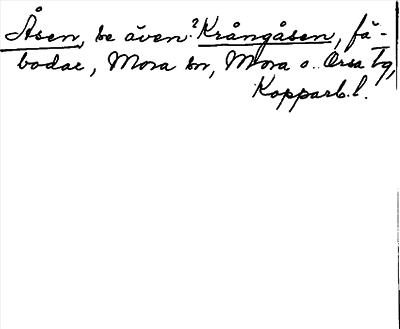 Åsen, be även ? Krångåsen, fä-
bodar, Mora sn, Mora o. Orsa tg,
Kopparb. l.